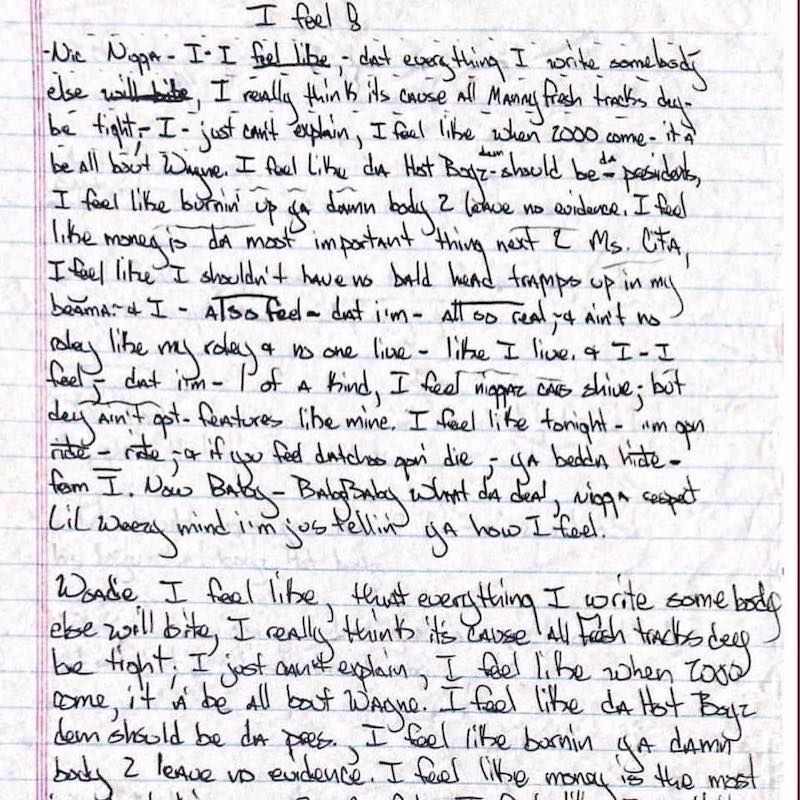 I feel 8
-Nic Nigga - I-I feel like, - dat everything I write somebody
else will bite, I really think its cause all Mannyfresh tracks dey-
be tight, - I - just can't explain, I feel like when 2000 come - it A
be all bout Wayne. I feel like dA Hot Boyz dem - should be - da presidents,
I feel like burnin' up ya damn body 2 leave no evidence. I feel
like money is dA most important thing next 2 Ms. CitA,
I feel like I shouldn't have no bald head tramps up in my
beamA - & I - Also feel - dat i'm - All so real, - & Ain't no
roley like my roley & no one live - like I live. & I - I
feel, - dat i'm - 1 of A kind, I feel niggaz cAn shine; but
dey Ain't got - features like mine. I feel like tonight - i'm gon
ride - ride, - & if you feel datchoo gon' die, - ya bedda hide -
from I. Now Baby - BabyBaby what da deal, Nigga respect
Lil Weezy mind i'm jus tellin' yA how I feel.
Woadie I feel like, that everything I write somebody
else will bite, I really think it's cause all fresh tracks deey
be tight, I just can't explain, I feel like when 2000
come, it A be all bout Wayne. I feel like dA Hot Boyz
dem should be dA pres., I feel like burnin yA damn
body 2 leave no evidence. I feel like money is the most